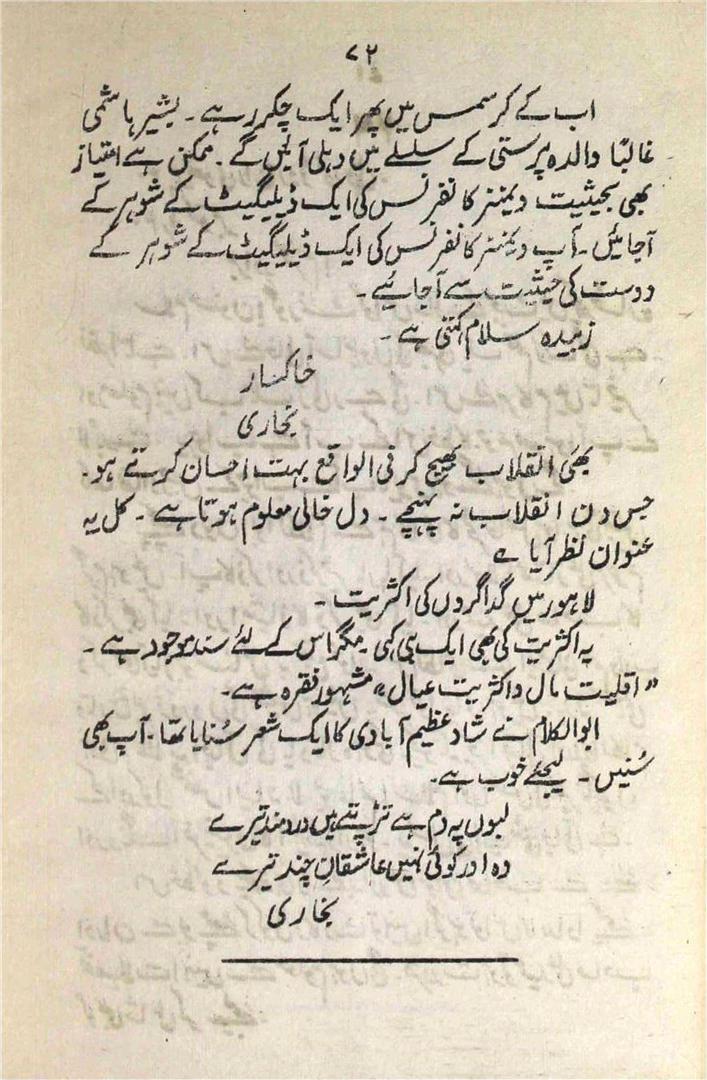 ۷۲
اب کے کرسمس میں پھر ایک چکر رہے ۔ بشیر ہاشمی
غالبًا والدہ پرستی کے سلسلے میں دہلی آئیں گے ۔ ممکن ہے امتیاز
بھی بحیثیت ویمنز کانفرنس کی ایک ڈیلیگیٹ کے شوہر کے
آجائیں ۔ آپ ویمنز کانفرنس کی ایک ڈیلیگیٹ کے شوہر کے
دوست کی حیثیت سے آجائیے ۔
زبیدہ سلام کہتی ہے ۔
خاکسار
بخاری
بھئی انقلاب بھیج کر فی الواقع بہت احسان کرتے ہو ۔
جس دن انقلاب نہ پہنچے ۔ دل خالی معلوم ہوتا ہے ۔ کل یہ
عنوان نظر آیا ے
لاہور میں گداگروں کی اکثریت ۔
یہ اکثریت کی بھی ایک ہی کہی ۔ مگر اس کے لئے سند موجود ہے ۔
" اقلیت مال و اکثریت عیال " مشہور فقرہ ہے ۔
ابوالکلام نے شاد عظیم آبادی کا ایک شعر سُنایا تھا ۔ آپ بھی
سُنیں ۔ لیجئے خوب ہے ۔
لبوں پہ دم ہے تڑپتے ہیں دردمند تیرے
وہ اور کوئی نہیں عاشقانِ چند تیرے
بخاری